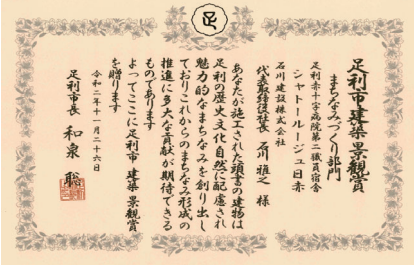 足
足利市建築景観賞
まちなみづくり部門
足利赤十字病院第二職員宿舎
シャトールージュ日赤
石川建設株式会社
代表取締役社長 石川雅之 様
あなたが施工された頭書の建物は
足利の歴史文化自然に配慮され
魅力的なまちなみを創り出し
ておりこれからのまちなみ形成の
推進に多大な貢献が期待できる
ものであります
よってここに足利市 建築 景観賞
を贈ります
令和二年十一月二十六日
足利市長 和泉 聡